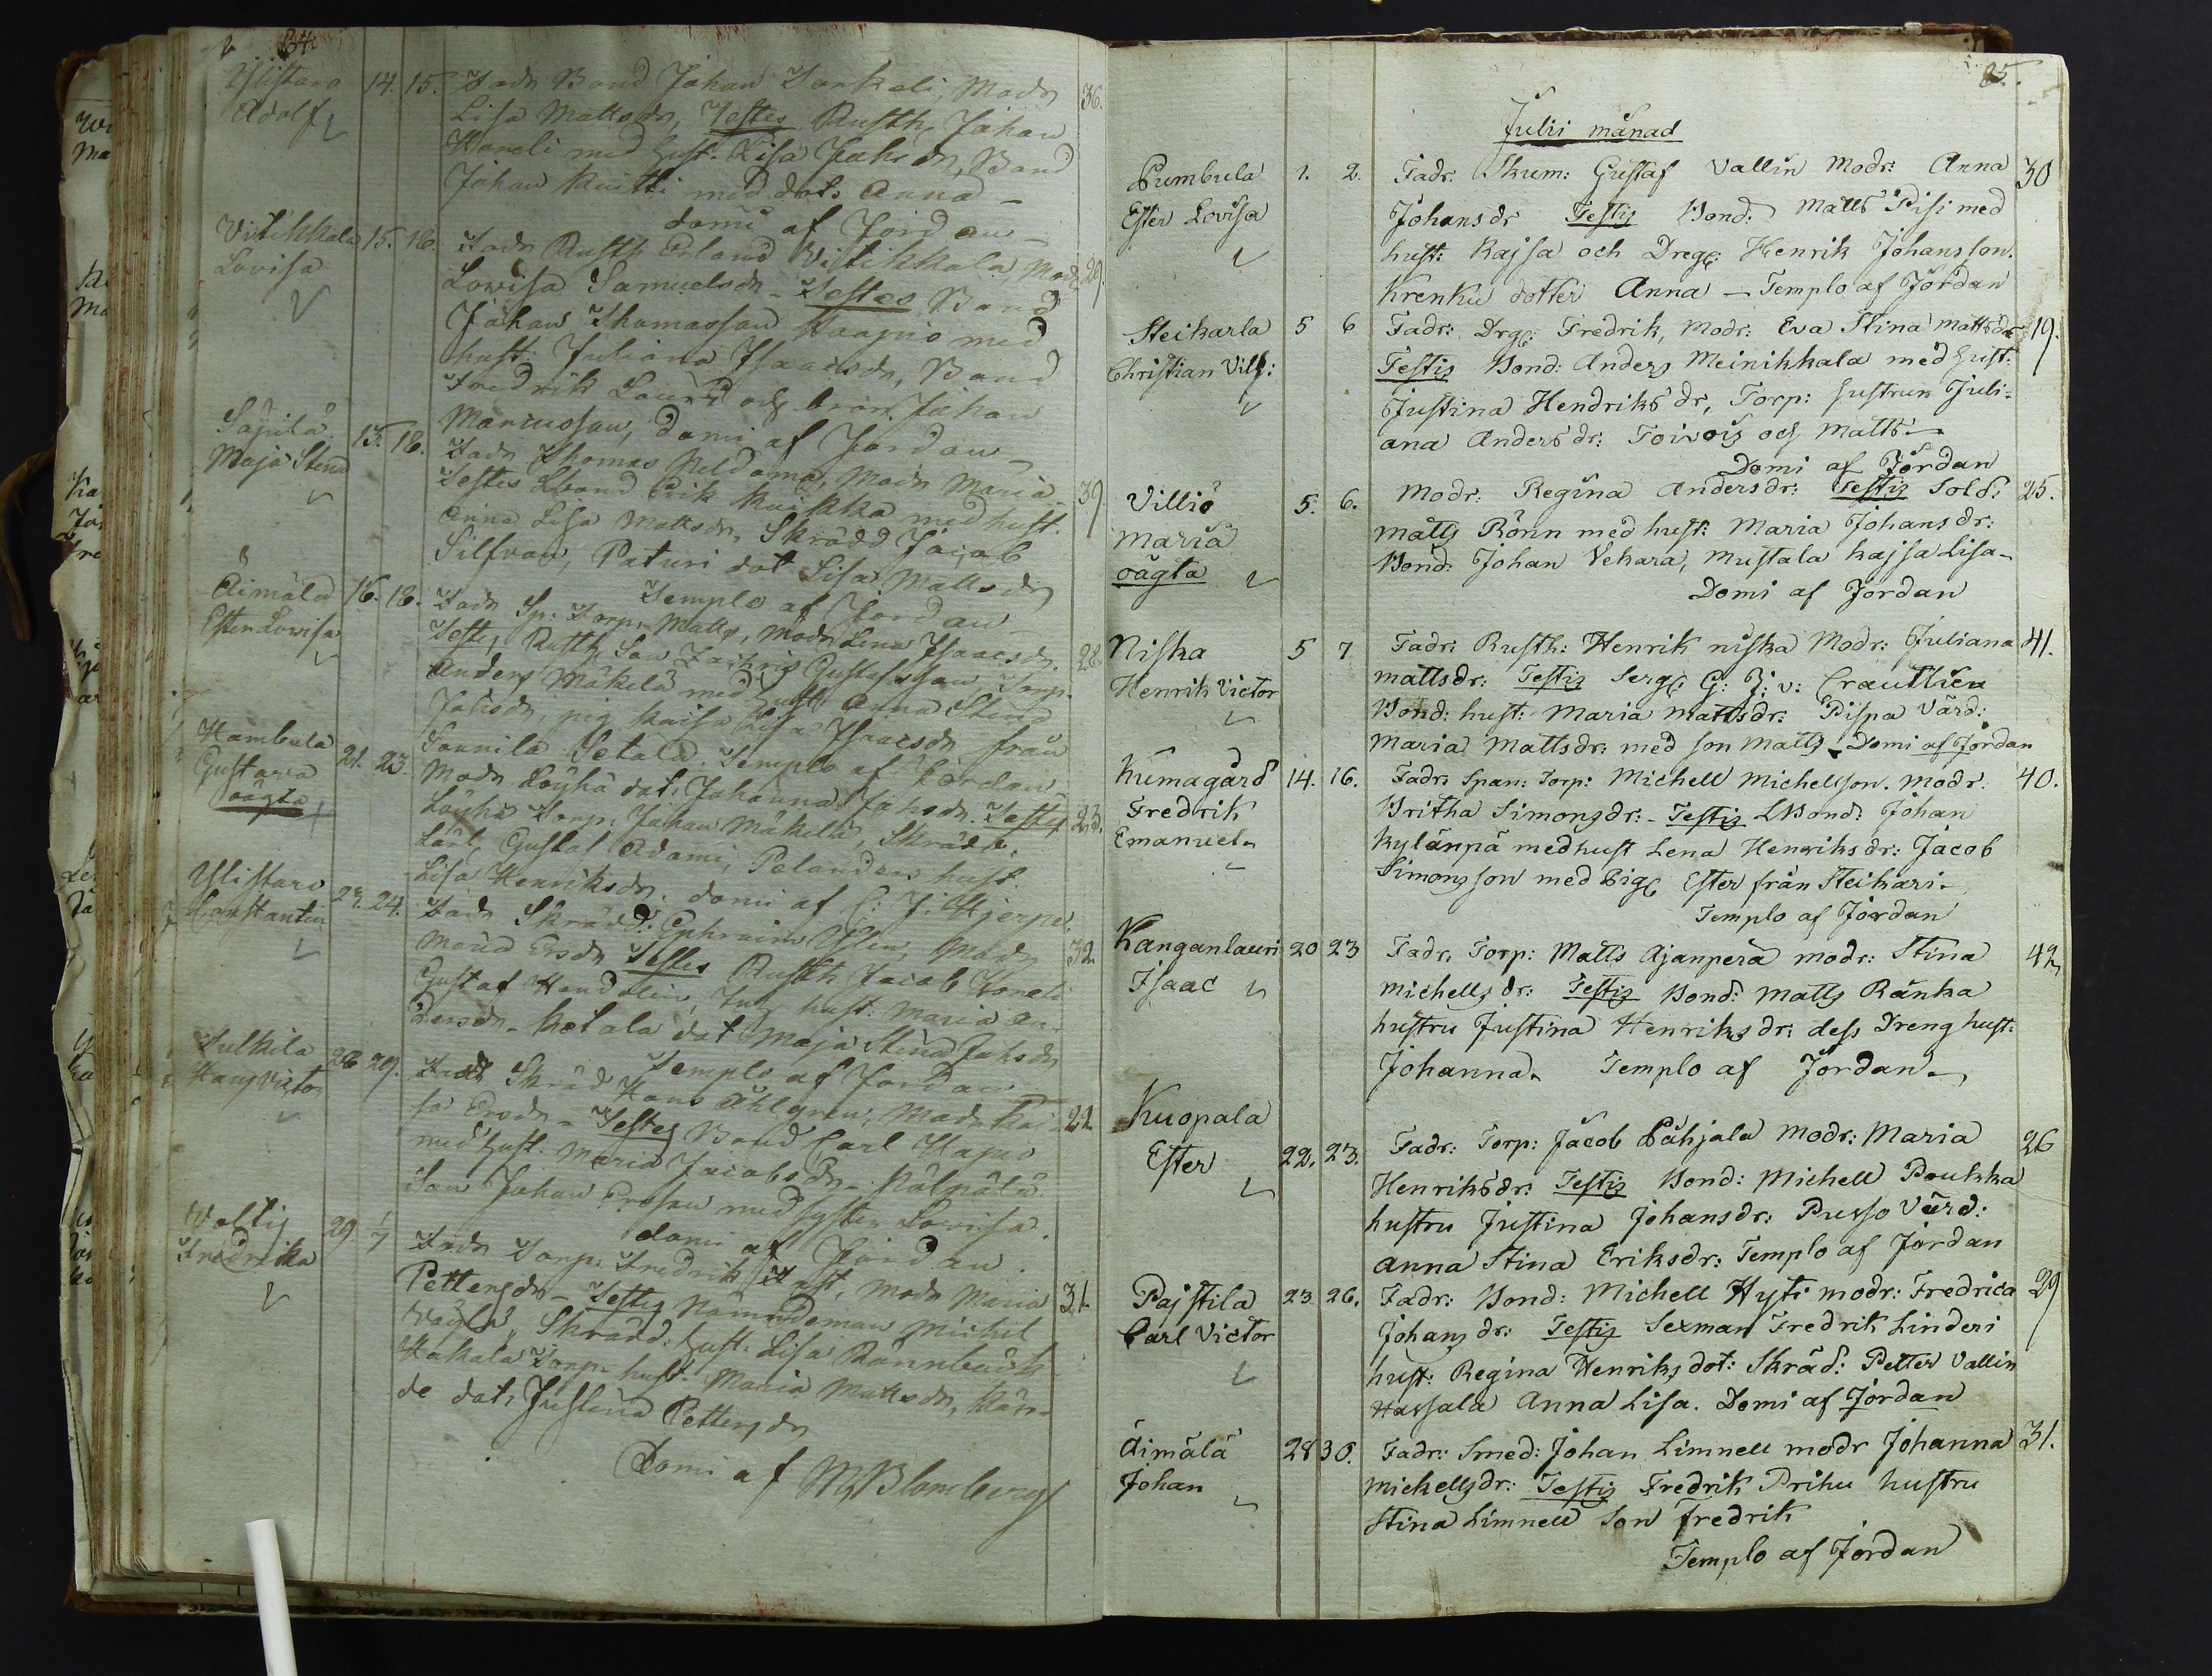 84.
Ylistaro 14. 15. Fadr Bond Johan Torkeli, Modr 36.
Adolf Lisa Mattsdr, Testes Rusth. Johan
Haneli med hust. Lisa Johsdr, Bond
Johan Kuitti med dotr Anna –
domi af Jordan –
Vitikkala 15. 18. Fadr Rusth Erland Vitikkala, Modr 29.
Lovisa Lowisa Samuelsdr – Testes Bond
Johan Thomasson Haapio med
hust. Juliana Isaacsdr, Bond
Fredrik Lauri och bror Johan
Mariusson, domi af Jordan –
Säjulä 15. 18. Fadr Thomas Peldoma, Modr Maria 39.
Maja Stina Testes Lbond Erik Kuikka med hust.
Anna Lisa Mattsdr, Skrädd Jacob
Silfvan, Paturi dot Lisa Mattsdr
Templo af Jordan –
Äimälä 16. 18. Fadr Sp. Torp. Matts, Modr Lena Isaacsdr. 28.
Ester Lovisa Testes Rusth Son Zachris Gustafsson, Torp.
Anders Mäkelä med hust. Anna Stina
Johsdr, pig Kaisa Lisa Isaacsdr från
Sonnila Setälä. Templo af Jordan
Hambula 21. 23. Modr Löyhä dot. Johanna Johsdr. Testes 23.
Gustava Löyhä Torp. Johan Mäkelä, Skrädd.
oägta Lärl. Gustaf Adami, Polanders hust.
Lisa Henriksdr. domi af C: J: Hjerpe.
Ylistaro 23. 24. Fadr Skrädd: Ephraim Öhlen, Modr 32.
Constantin Maria Ersdr Testes Rusth Jacob Honeli
Gustaf Hendelin, Ing hust. Maria An-
dersdr – Kotala dot Maja Stina Johsdr
Templo af Jordan –
Sulkila 28 29. Fadr Skräd Hans Åhlgren, Modr Kai- 22
Hans Victor sa Ersdr – Testes Bond Carl Hapio
med hust. Maria Jacobsdr – Pälpälä
Son Johan Ersson med syster Lovisa.
domi af Jordan.
Voltis 29. 1/7 Fadr Torp. Fredrik Hast, Modr Maria 31
Fredrika Pettersdr – Testes Nämndeman Michel
Vägla Skrädd. hust. Lisa Rännbäck
Hakala Torp. hust. Maria Mattsdr, Kär-
de dotr Justina Pettersdr
Domi af M Blomberg
85.
Julii månad
Pumbula 1. 2. Fadr: Skum: Gustaf Vallin Modr: Anna 30
Ester Lovisa Johansdr Testis Bond: Matts Pisi med
hust: Kajsa och Dreg: Henrik Johansson.
Krenku dotter Anna – Templo af Jordan
Steikarla 5 6 Fadr: Drg: Fredrik, Modr: Eva Stina Mattsdr 19.
Christian Vilh: Testis Bond: Anders Meinikkala med hust:
Justina Hendriks dr, Torp: hustrun Juli-
ana Anders dr: Toivois och Matts –
Domi af Jordan
Villiö 5. 6. Modr. Regina Andersdr: Testis Sold: 25.
Maria Matts Rönn med hust: Maria Johansdr:
oägta Bond: Johan Vekara, Mustala Kajsa Lisa –
Domi af Jordan
Niska 5 7 Fadr: Rusth: Henrik Niska Modr: Juliana 41.
Henrik Victor Mattsdr: Testis Serg: G: J: v: Crautlien
Bond: hust: Maria Mattsdr: Pispa Värd:
Maria Mattsdr: med son Matts – Domi af Jordan
Kumagård 14. 16. Fadr: Span: Torp: Michell Michellson. Modr. 40.
Fredrik Britha Simonsdr: – Testis LBond: Johan
Emanuel Kylänpä med hust Lena Henriksdr: Jacob
Simonsson med Pig: Ester från Steikari.
Templo af Jordan
Kanganlauri 20 23 Fadr. Torp: Matts Ajanperä modr: Stina 42
Isaac Michellsdr: Testis Bond: Matts Ränka
hustru Justina Henriksdr: dess Dreng hust:
Johanna. Templo af Jordan.
Kuopala
Ester 22. 23. Fadr: Torp: Jacob Påhjala Modr: Maria 26
Henriksdr: Testis Bond: Michell Poukka
hustru Justina Johansdr: Pusso Värd:
Anna Stina Eriksdr: Templo af Jordan
Pajstila 23 26. Fadr: Bond: Michell Hyti modr: Fredrica 29
Carl Victor Johansdr: Testis Sexman Fredrik Linderi
hust: Regina Henriks dot: Skräd: Petter Vallin
Hassala Anna Lisa. Domi af Jordan
Äimälä 28 30. Fadr: Smed: Johan Limnell modr Johanna 31.
Johan Michellsdr: Testis Fredrik Prihu hustru
Stina Limnell Son Fredrik
Templo af Jordan